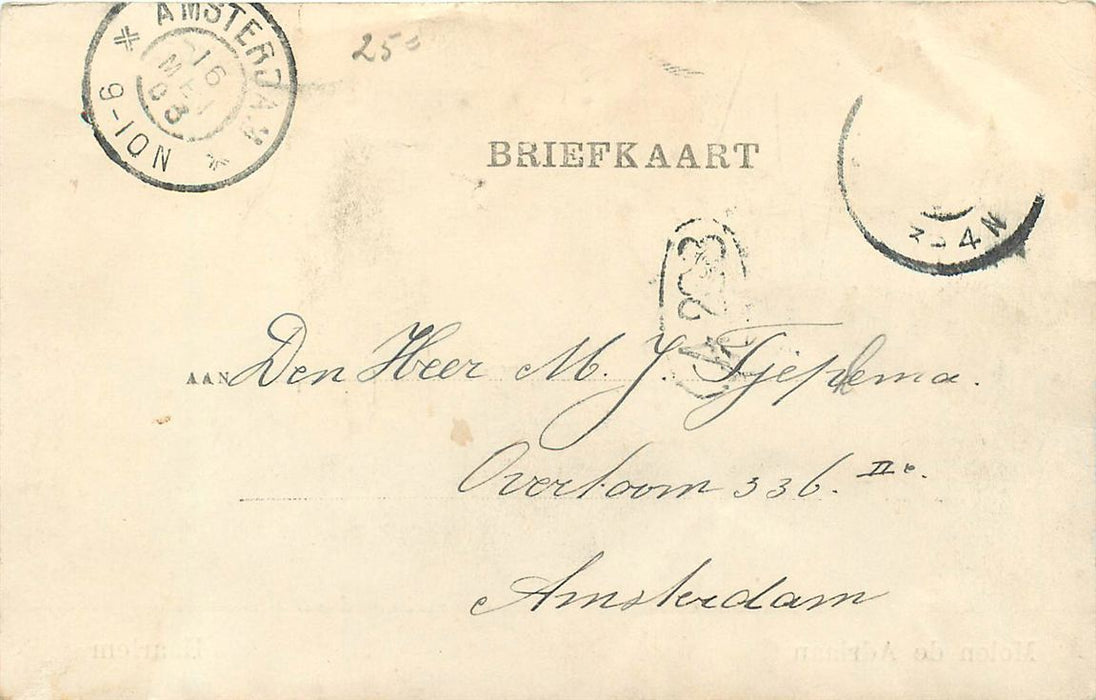 AMSTERDAM
16
MEI
03
9-10N
25
BRIEFKAART
4N
AAN Den Heer M. J. Tjepkema.
Overtoom 336. II e.
Amsterdam
Molen de Adriaan Haarlem